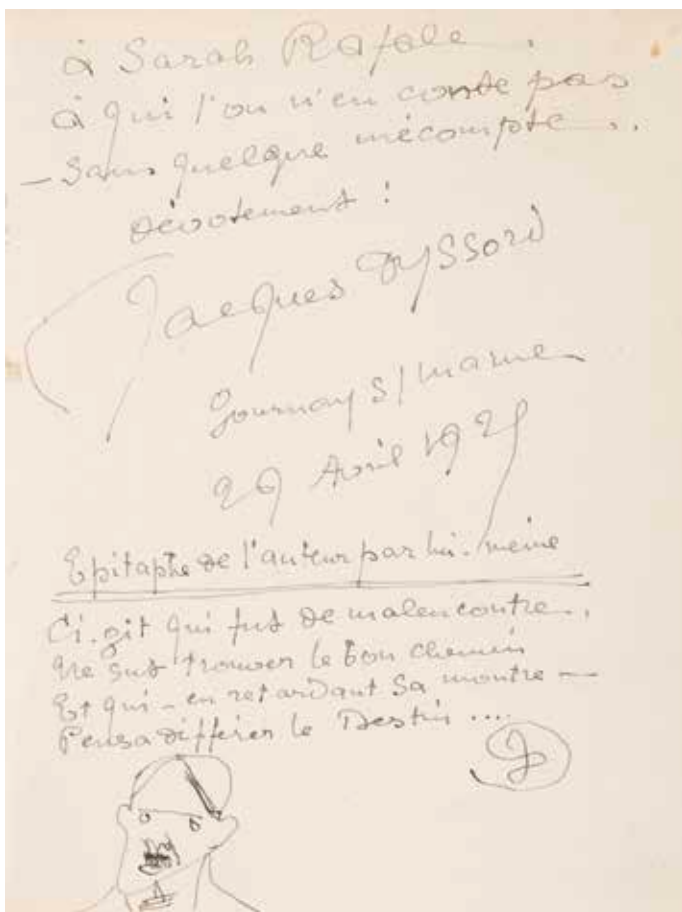 à Sarah Rafale.
à qui l'on n'en conte pas
– Sans quelque mécompte...
dévotement :
Jacques Dyssord
Gournay s/ marne
29 Avril 1925
Epitaphe de l'auteur par lui-même
Ci-gît qui fut de malencontre..
Ne sut trouver le bon chemin
Et qui – en retardant sa montre –
Pensa différer le Destin ....
JD